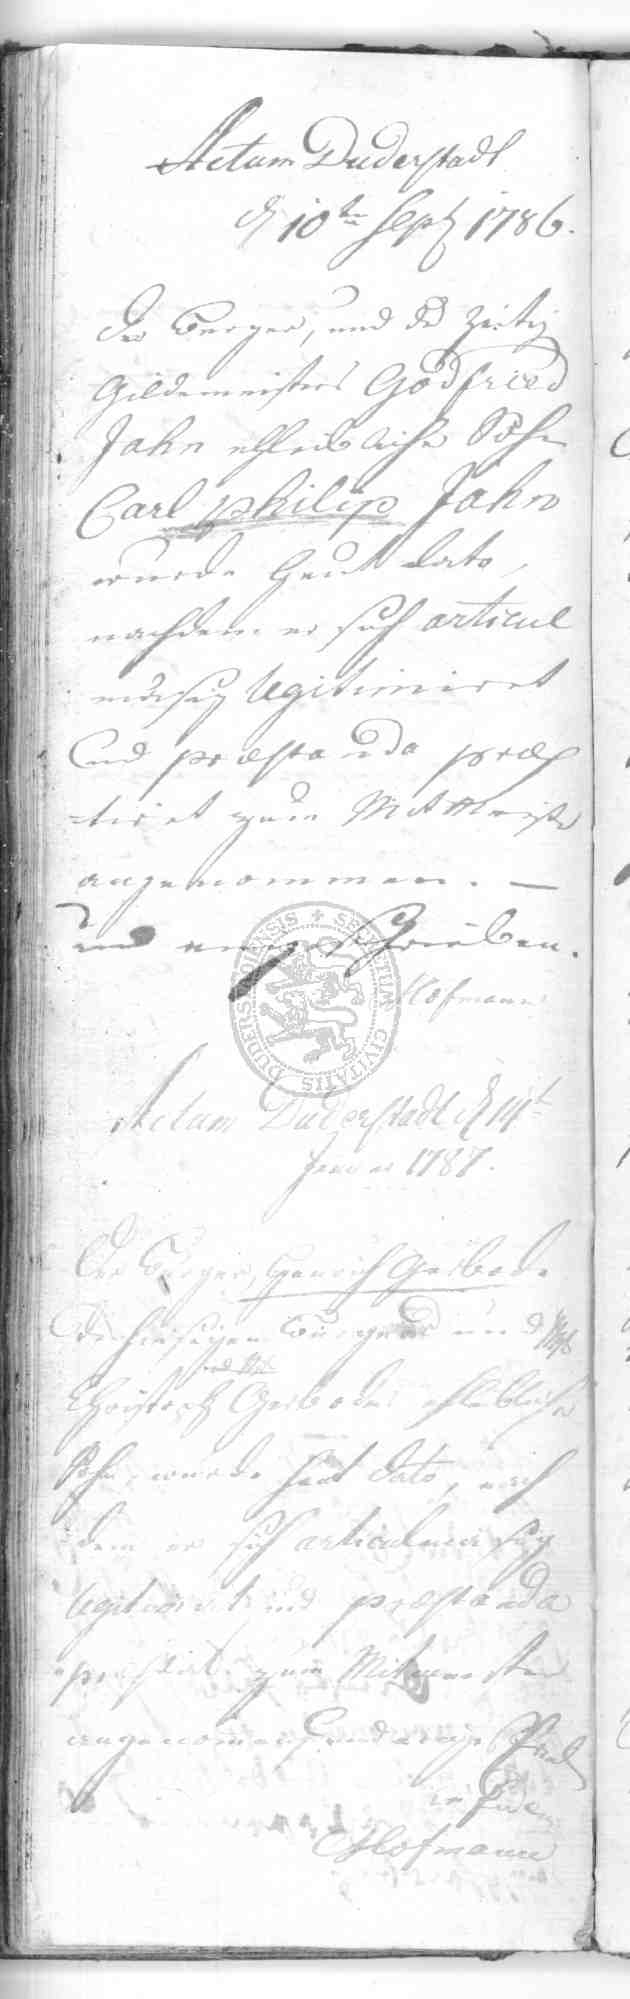 Actum Duderstadt
d 10ten Sept 1786.
Der Burger, und der Zeitig
Gildemeisters Godfried
Jahn ehleibliche Sohn
Carl philip Jahn
wurde heut dato,
nachdem er sich articul
mäsig legitimiret
und praestanda praes
tiret zum Mit Meister
angenommen. —
und eingeschrieben.
Hofmann
SECRETUM CIVITATIS DUDERSTADIENSIS
Actum Duderstadt d 14t
Januar 1787.
Der Burger, Henrich Gerbode
des hiesigen Burgers und
Gerbodes ehleiblicher
Sohn, wurde heut dato, nach
dem er sich articulmäsig
legitimiret und praestanda
praestiret zum Mitmeister
angenommen, und
in fidem
Hofmann